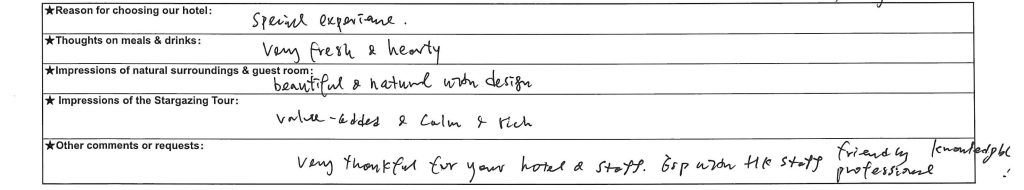 ★Reason for choosing our hotel: Special experience.
★Thoughts on meals & drinks: Very fresh & hearty
★Impressions of natural surroundings & guest room: beautiful & natural design
★ Impressions of the Stargazing Tour: value-added & calm & rich
★Other comments or requests: Very thankful for your hotel & staff. Esp HK staff friendly professional